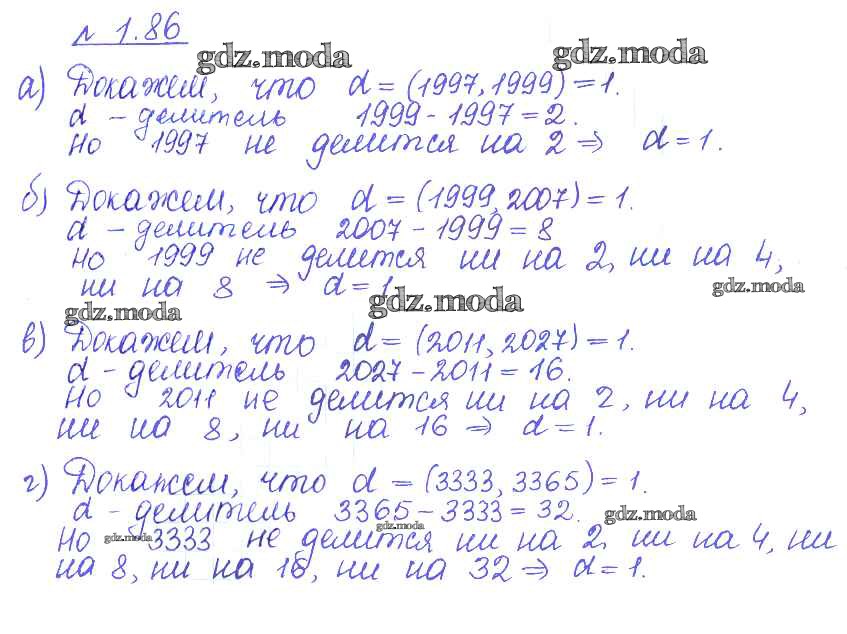 № 1.86
gdz.moda
gdz.moda
а) Докажем, что d = (1997, 1999) = 1.
d – делитель 1999 - 1997 = 2.
Но 1997 не делится на 2 ⇒ d = 1.
б) Докажем, что d = (1999, 2007) = 1.
d – делитель 2007 - 1999 = 8
но 1999 не делится ни на 2, ни на 4,
ни на 8 ⇒ d = 1
gdz.moda
gdz.moda
gdz.moda
в) Докажем, что d = (2011, 2027) = 1.
d - делитель 2027 - 2011 = 16.
Но 2011 не делится ни на 2, ни на 4,
ни на 8, ни на 16 ⇒ d = 1.
г) Докажем, что d = (3333, 3365) = 1.
d - делитель 3365 - 3333 = 32.
gdz.moda
gdz.moda
gdz.moda
Но 3333 не делится ни на 2, ни на 4, ни
на 8, ни на 16, ни на 32 ⇒ d = 1.